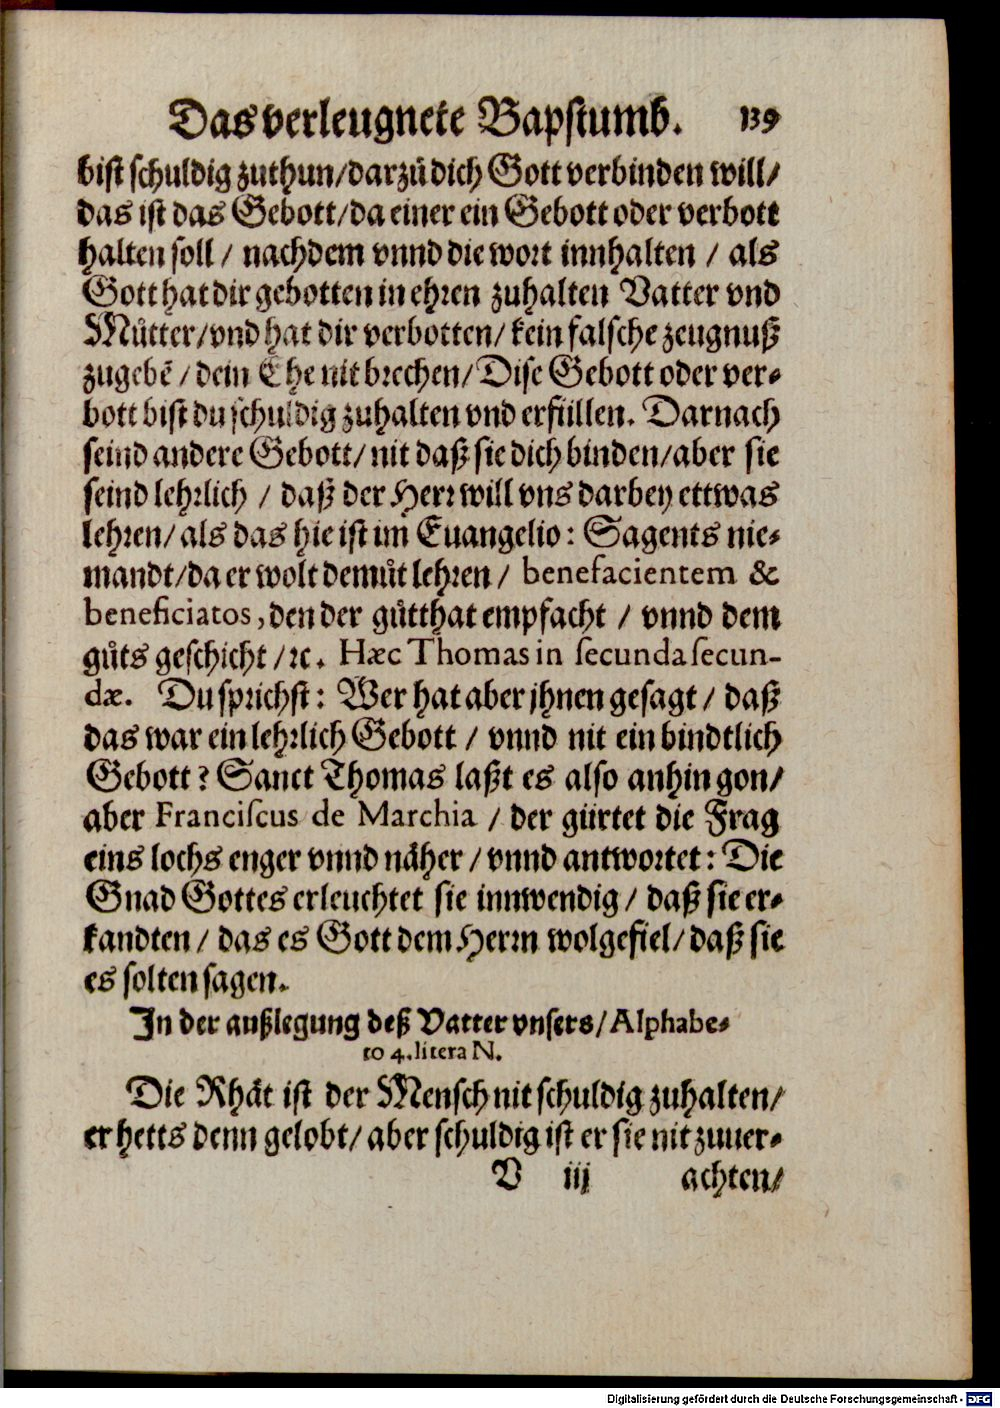 Das verleugnete Bapstumb. 139
bist schuldig zuthun/darzů dich Gott verbinden will/
das ist das Gebott/da einer ein Gebott oder verbott
halten soll / nachdem vnnd die wort innhalten / als
Gott hat dir gebotten in ehren zuhalten Vatter vnd
Můtter/vnd hat dir verbotten/kein falsche zeugnuß
zugebẽ/dein Ehe nit brechen/Dise Gebott oder ver-
bott bist du schuldig zuhalten vnd erfüllen. Darnach
seind andere Gebott/nit daß sie dich binden/aber sie
seind lehrlich / daß der Herr will vns darbey ettwas
lehren/als das hie ist im Euangelio: Sagents nie-
mandt/da er wolt demůt lehren / benefacientem &
beneficiatos, den der gůtthat empfacht / vnnd dem
gůts geschicht /ꝛc. Hæc Thomas in secunda secun-
dæ. Du sprichst: Wer hat aber jhnen gesagt / daß
das war ein lehrlich Gebott / vnnd nit ein bindtlich
Gebott? Sanct Thomas laßt es also anhin gon/
aber Franciscus de Marchia / der gürtet die Frag
eins lochs enger vnnd näher / vnnd antwortet: Die
Gnad Gottes erleuchtet sie innwendig / daß sie er-
kandten / das es Gott dem Herrn wolgefiel/daß sie
es solten sagen.
In der außlegung deß Vatter vnsers/Alphabe-
to 4. litera N.
Die Rhät ist der Mensch nit schuldig zuhalten/
er hetts denn gelobt/aber schuldig ist er sie nit zuuer-
V iij achten/
Digitalisierung gefördert durch die Deutsche Forschungsgemeinschaft - DFG